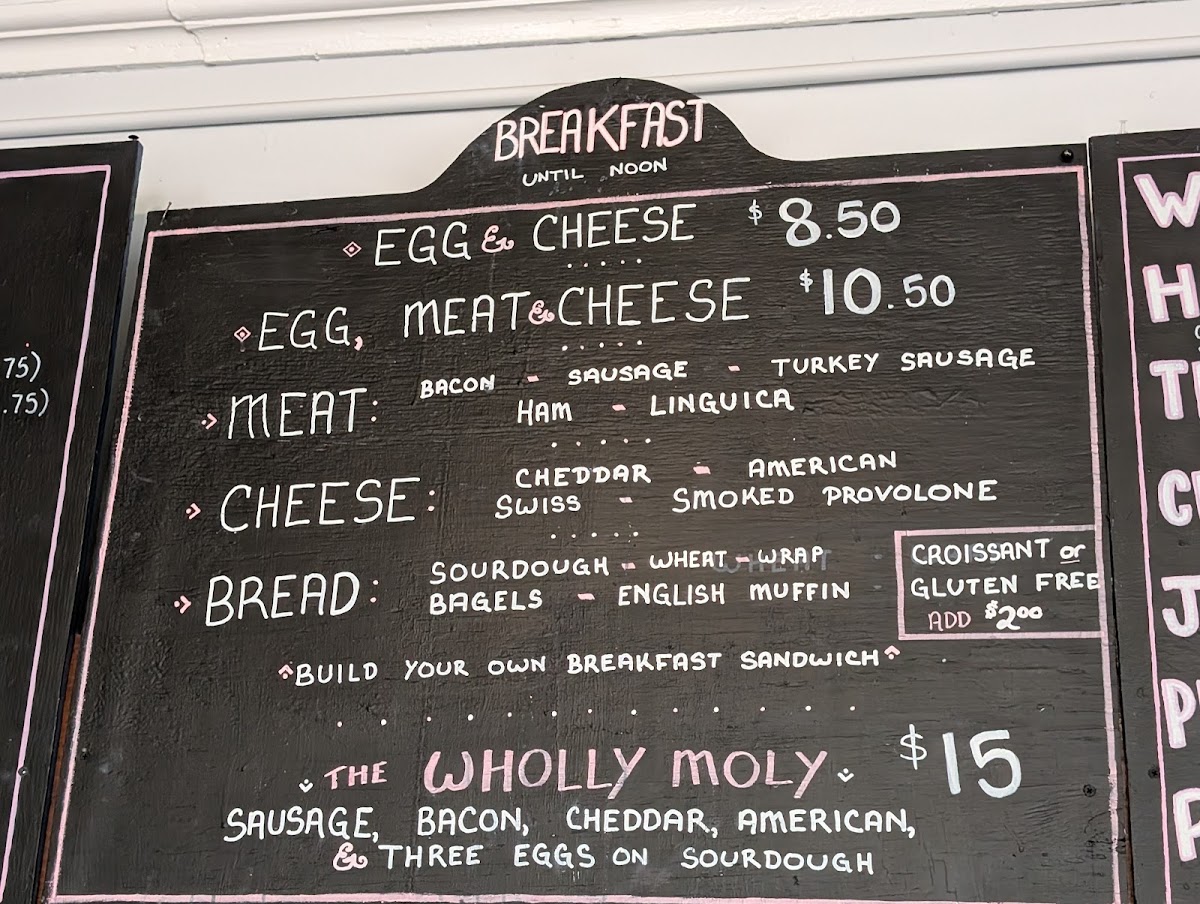 BREAKFAST
UNTIL NOON
EGG & CHEESE $8.50
EGG, MEAT & CHEESE $10.50
MEAT: BACON - SAUSAGE - TURKEY SAUSAGE
HAM - LINGUICA
CHEESE: CHEDDAR - AMERICAN
SWISS - SMOKED PROVOLONE
BREAD: SOURDOUGH - WHEAT - WRAP
BAGELS - ENGLISH MUFFIN
CROISSANT or
GLUTEN FREE
ADD $2.00
BUILD YOUR OWN BREAKFAST SANDWICH
THE WHOLLY MOLY $15
SAUSAGE, BACON, CHEDDAR, AMERICAN,
& THREE EGGS ON SOURDOUGH
75)
.75)
W
H
T
C
J
P